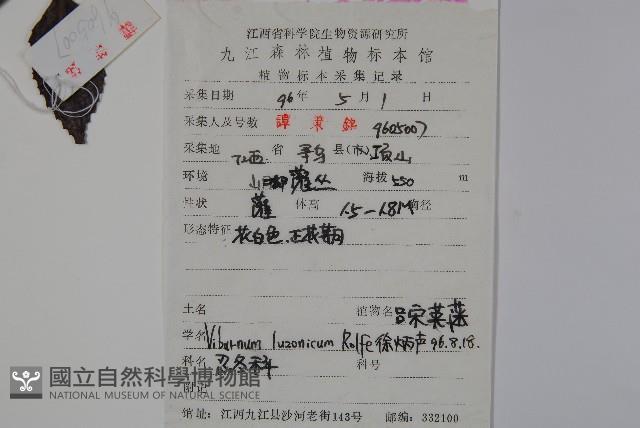 江西省科学院生物资源研究所
九江森林植物标本馆
植物标本采集记录
采集日期 96年 5月 1日
采集人及号数 譚策銘 9605007
采集地 江西省寻乌县(市)项山
环境 山脚灌丛 海拔 550 m
性状 灌 体高 1.5-1.8M 胸径
形态特征 花白色.正花期
土名 植物名 吕宋荚蒾
学名 Viburnum luzonicum Rolfe 徐炳声 96.8.18.
科名 忍冬科 科号
附记
馆址：江西九江县沙河老街143号 邮编：332100
9605007
國立自然科學博物館
NATIONAL MUSEUM OF NATURAL SCIENCE